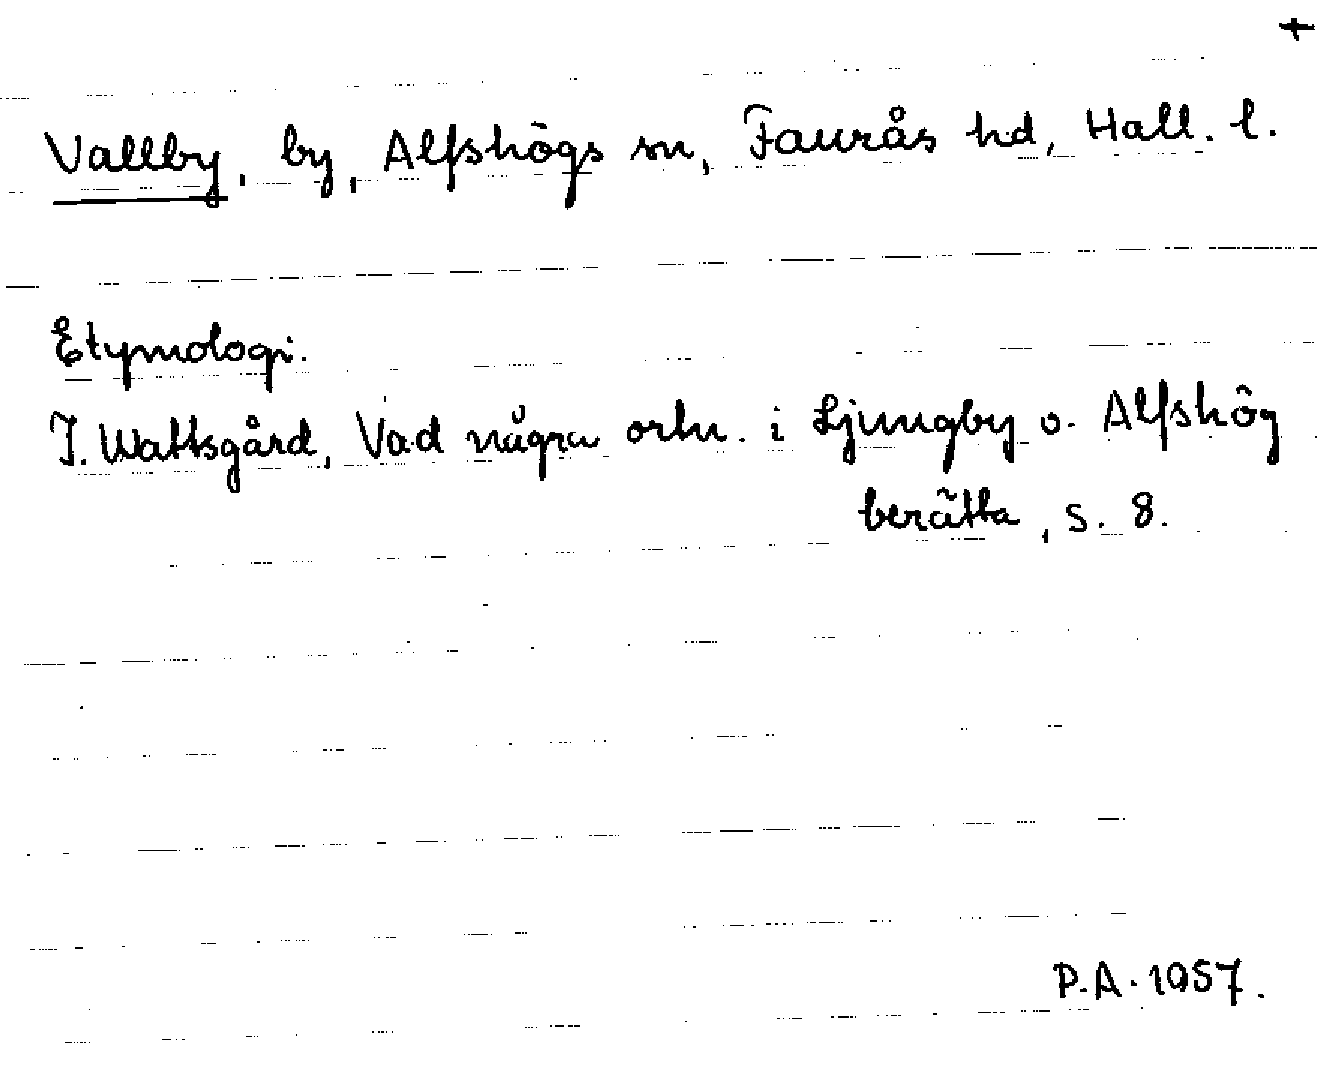 +
Vallby, by, Alfshögs sn, Faurås hd, Hall. l.
Etymologi.
J. Wattsgård, Vad några ortn. i Ljungby o. Alfshög
berätta, s. 8.
P.A. 1957.